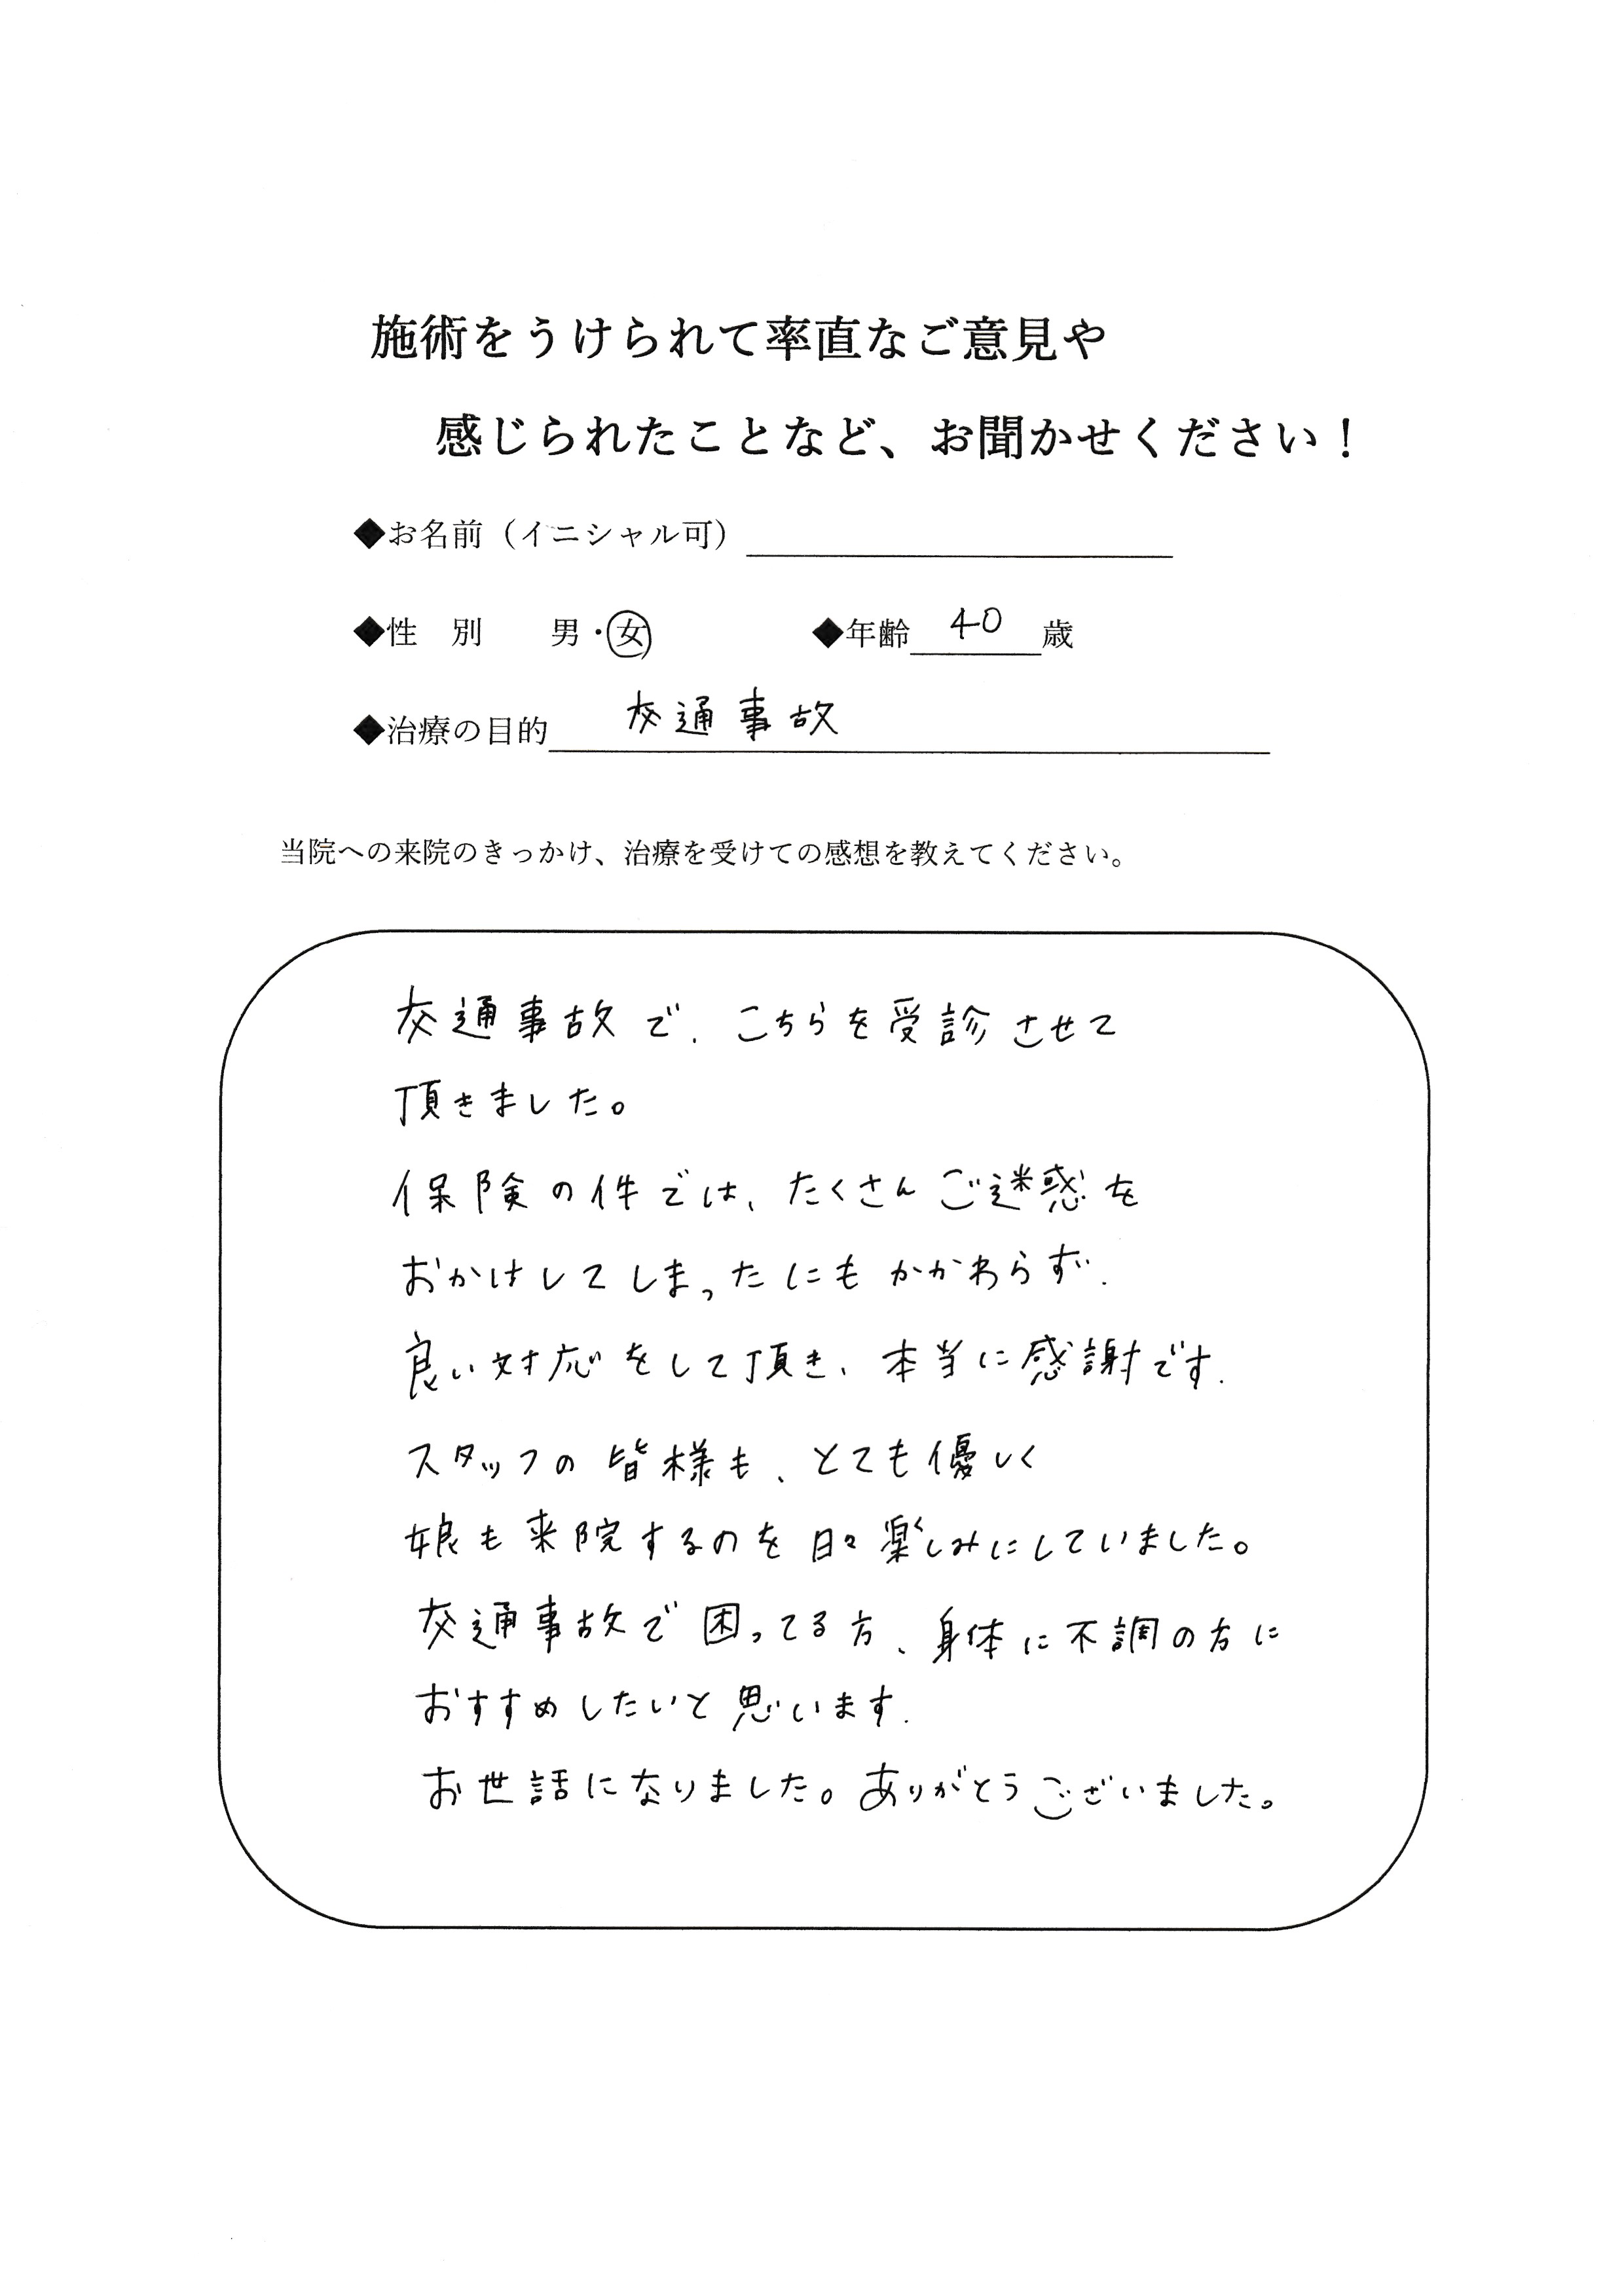 施術をうけられて率直なご意見や
感じられたことなど、お聞かせください！
◆お名前（イニシャル可）
◆性　別　　男・女　　　　◆年齢 40 歳
◆治療の目的 交通事故
当院への来院のきっかけ、治療を受けての感想を教えてください。
交通事故で、こちらを受診させて
頂きました。
保険の件では、たくさんご迷惑を
おかけしてしまったにもかかわらず、
良い対応をして頂き、本当に感謝です.
スタッフの皆様も、とても優しく
娘も来院するのを日々楽しみにしていました。
交通事故で困ってる方、身体に不調の方に
おすすめしたいと思います.
お世話になりました。ありがとうございました。